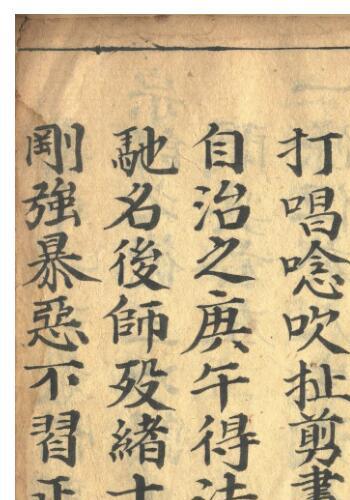 打唱唸吹扯剪
自治之庚午得
馳名後師歿緒
剛強暴惡不習